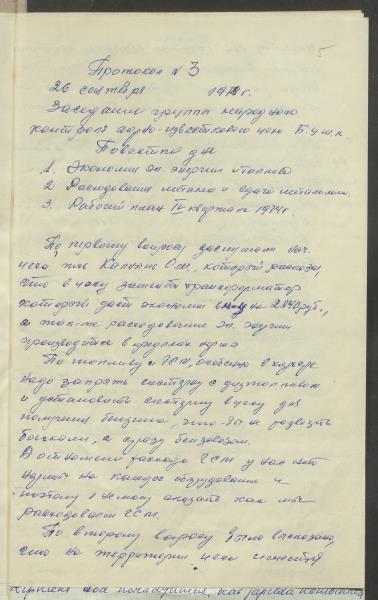 5
Протокол N 3
26 сентября 1974 г.
Заседание группы народного
контроля горно-известкового цеха
Повестка дня
1. Экономия эл. энергии и топлива
2. Расходование металла и сдача металлолома
3. Рабочий план IV квартала 1974 г
По первому вопросу заслушали нач.
цеха т., который рассказал,
что в цеху заменят трансформатор
который даст экономию на 2840 руб.,
а так-же расходование эл. энергии
производится в пределах нормы
По топливу и ГСМ, особенно в карьере
надо запрать цистерну с дизтопливом
и установить цистерну в цеху для
получения бензина, что-бы не развозить
бочками, а сразу бензовозом.
В отношении расхода ГСМ у нас нет
норм на каждое оборудование и
поэтому не могу сказать как мы
расходуем ГСМ.
По второму вопросу было высказано,
что на территории цеха имеется